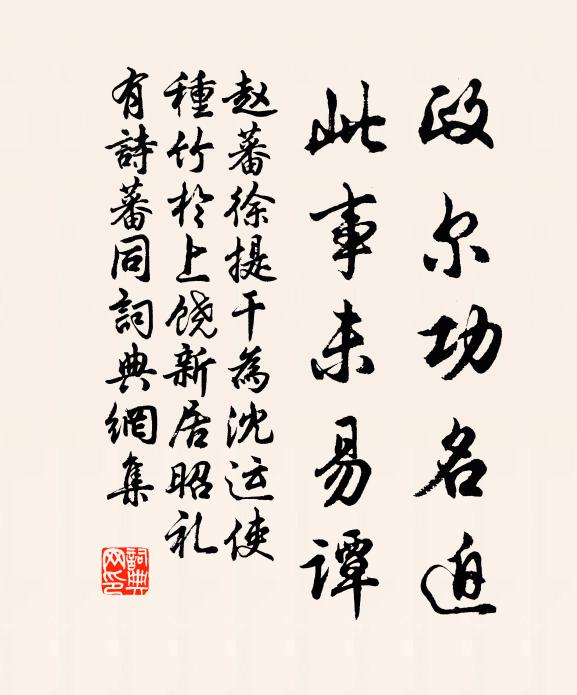 政尔功名迫
此事未易谭
赵蕃徐提干為沈运使
種竹於上饶新居昭礼
有詩蕃同詞典網集
詞典网印